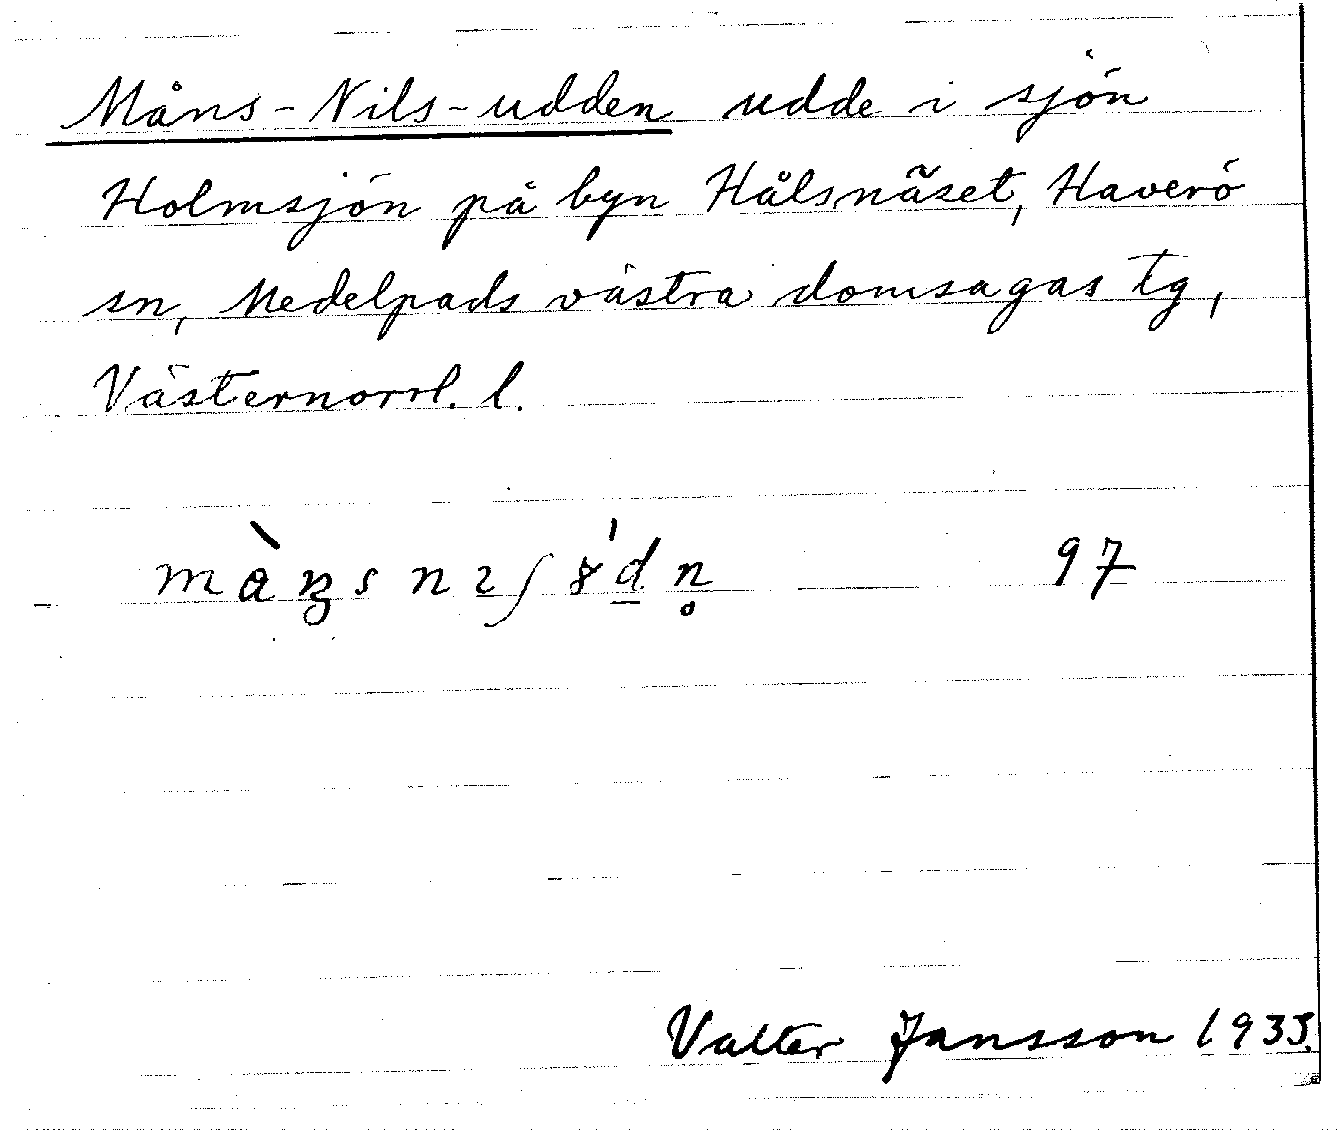 Måns-Nils-udden udde i sjön
Holmsjön på byn Hålsnäset, Haverö
sn, Medelpads västra domsagas tg,
Västernorrl. l.
97
Valter Jansson 1935.